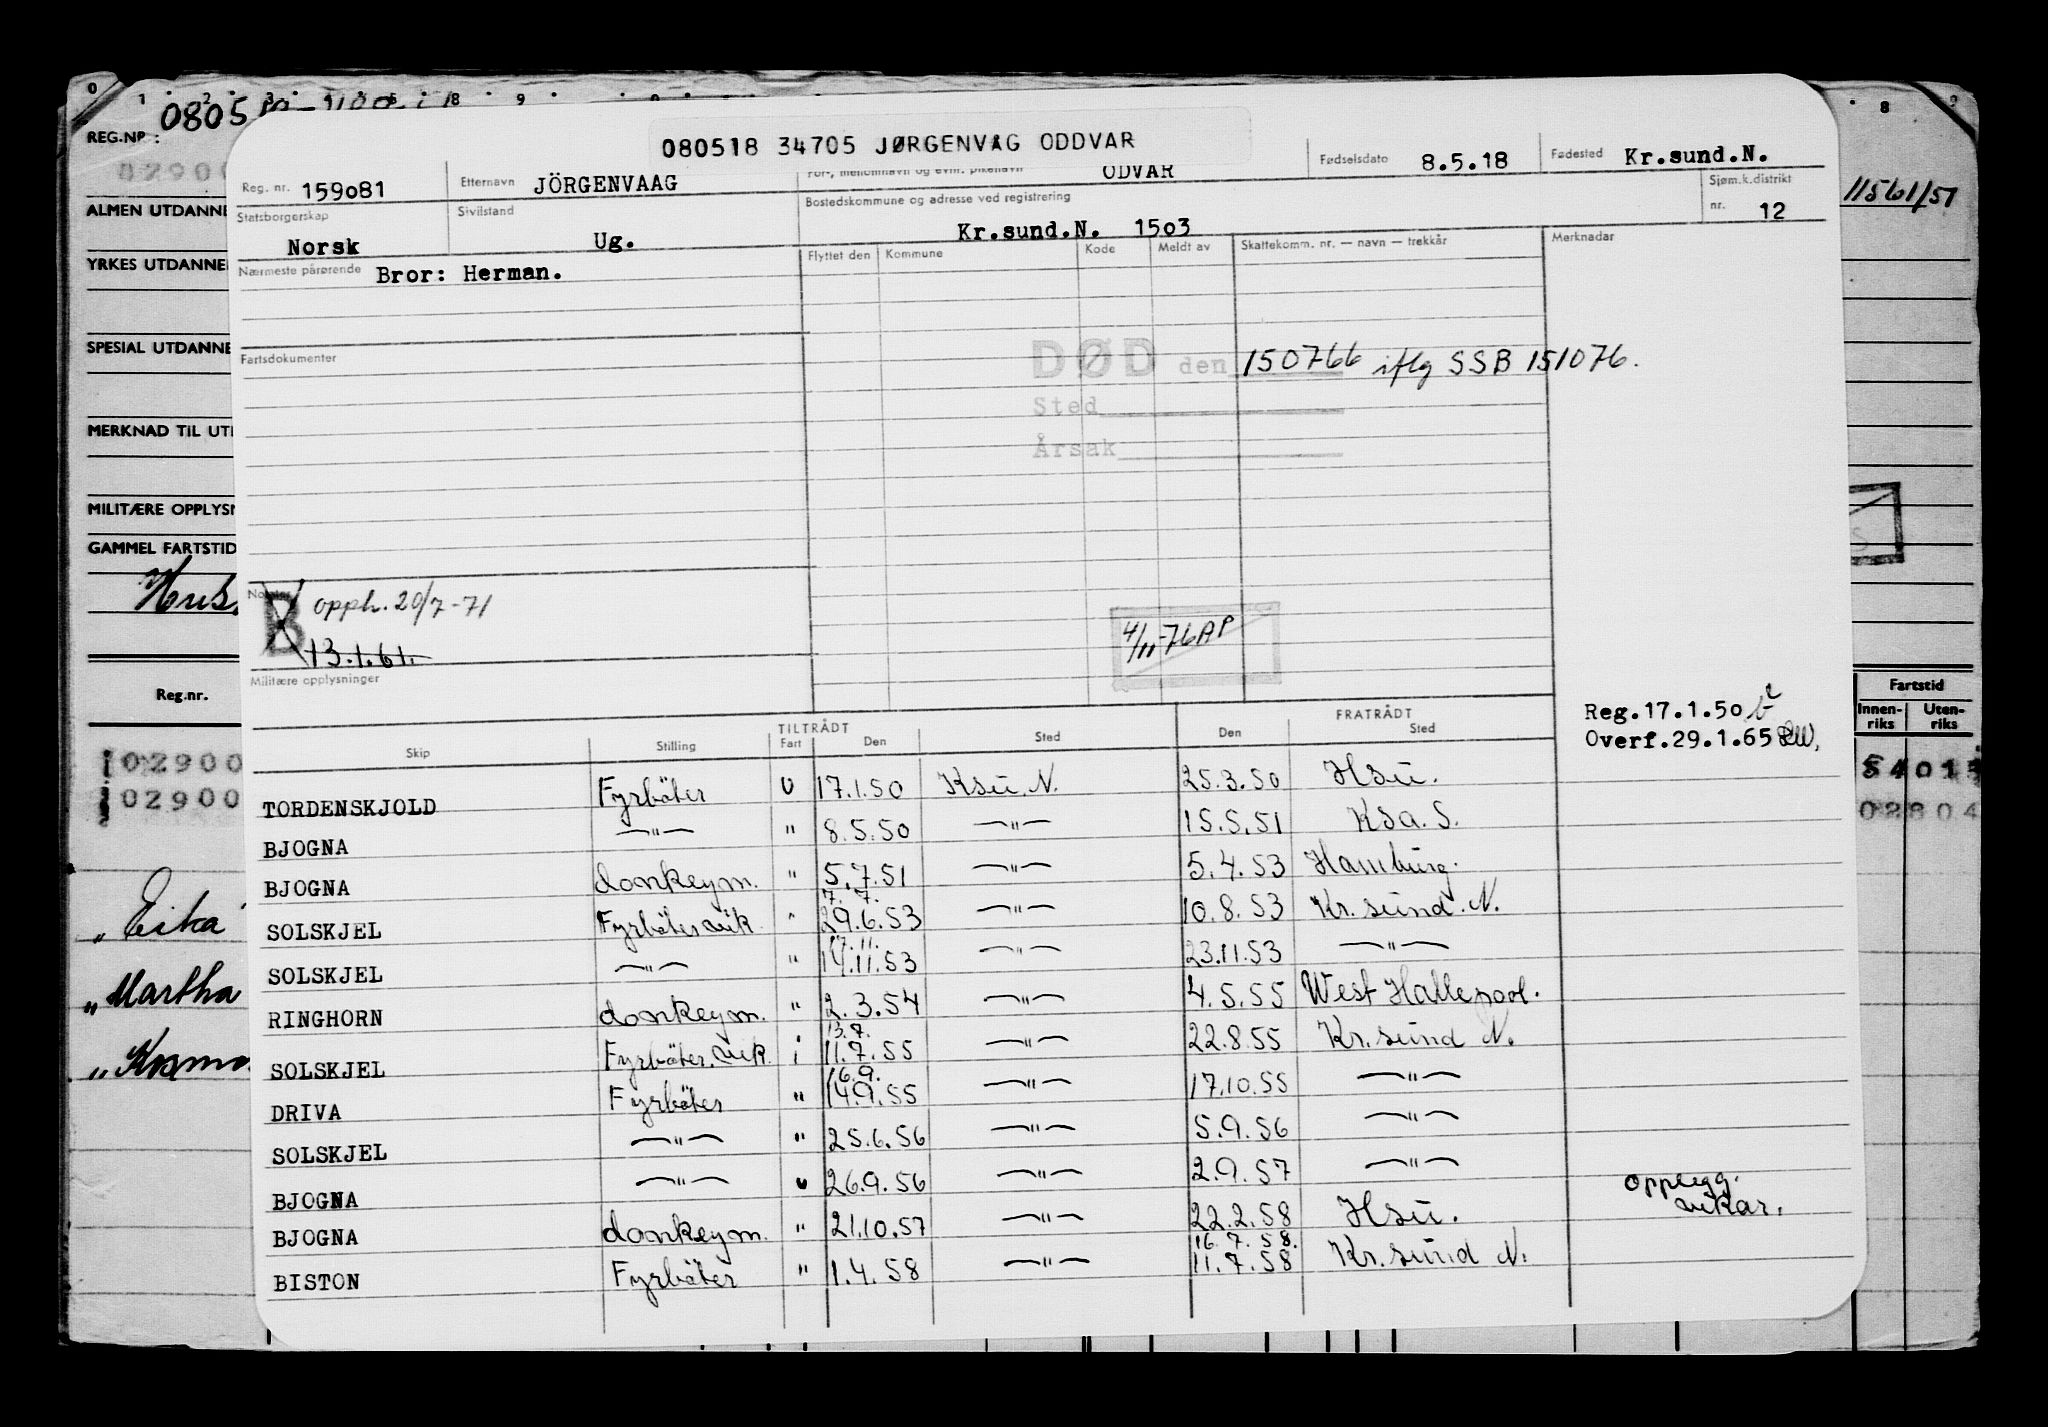 0 1 2 3 4 5 8 9 8
REG.NR.: 0805
080518 34705 JØRGENVAG ODDVAR
Reg. nr. 159o81 Etternavn JÖRGENVAAG For-, mellomnavn og evnt. pikenavn ODVAR Fødselsdato 8.5.18 Fødested Kr.sund.N.
02900
ALMEN UTDANNE
Statsborgerskap Norsk Sivilstand Ug. Bostedskommune og adresse ved registrering Kr.sund.N. 15o3 Sjøm.k.distrikt nr. 12
11561/51
YRKES UTDANNE
Nærmeste pårørende Bror: Herman. Flyttet den Kommune Kode Meldt av Skattekomm. nr. — navn — trekkår Merknadar
SPESIAL UTDANNE
Fartsdokumenter
DØD den 150766 iflg SSB 151076.
Sted
MERKNAD TIL UT
Årsak
MILITÆRE OPPLYSN
GAMMEL FARTSTID
B opph. 20/7-71
13.1.61.
4/11-76 AP
Militære opplysninger
Reg.nr.
Fartstid
Innen-riks Uten-riks
Reg.17.1.50
Overf.29.1.65 RW.
TILTRÅDT FRATRÅDT
Skip Stilling Fart Den Sted Den Sted
02900
02900
54015
02804
TORDENSKJOLD Fyrböter U 17.1.50 Ksu. N. 25.3.50 Hsu.
BJOGNA —"— " 8.5.50 —"— 15.5.51 Ksa. S.
BJOGNA donkeym. " 5.7.51 —"— 5.4.53 Hamburg.
7. 7.
SOLSKJEL Fyrböter vik. " 29.6.53 —"— 10.8.53 Kr. sund. N.
17.11.
SOLSKJEL —"— " 14.11.53 —"— 23.11.53 —"—
RINGHORN donkeym. " 2.3.54 —"— 4.5.55 West Hallepool.
13.7.
SOLSKJEL Fyrböter. vik. i 11.7.55 —"— 22.8.55 Kr. sund N.
16.9.
DRIVA Fyrböter " 14.9.55 —"— 17.10.55 —"—
SOLSKJEL —"— " 25.6.56 —"— 5.9.56 —"—
BJOGNA —"— u 26.9.56 —"— 2.9.57 —"—
BJOGNA donkeym. " 21.10.57 —"— 22.2.58 Hsu. opplegg. vikar.
16. 7. 58.
BISTON Fyrböter " 1.4.58 —"— 11.7.58 Kr. sund N.
„Eika
„Martha